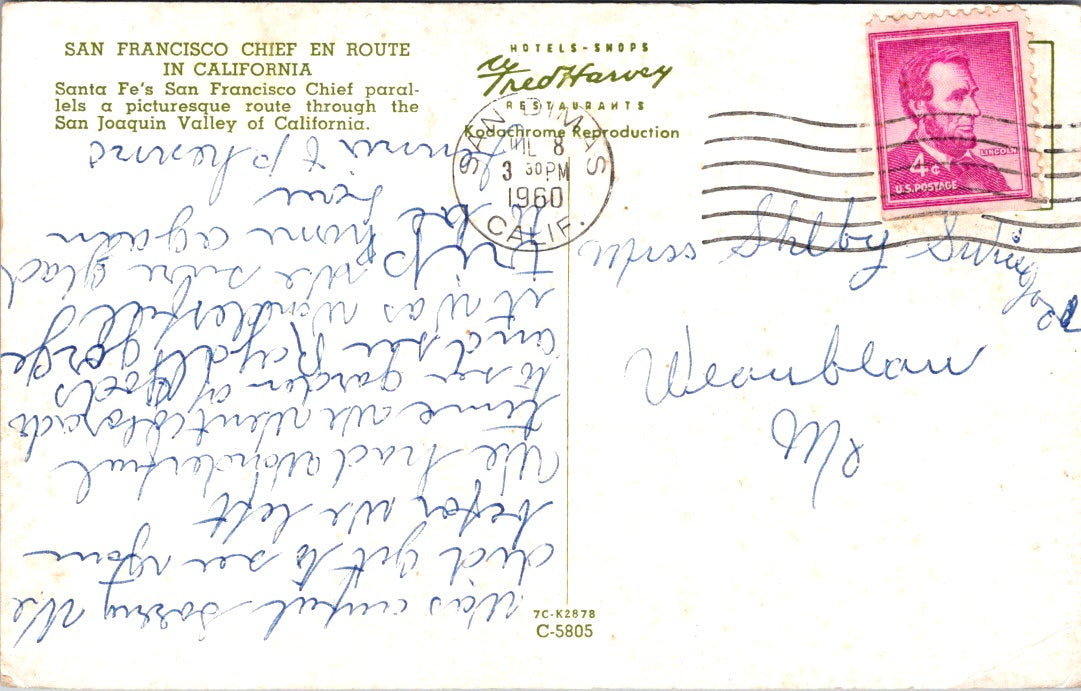 SAN FRANCISCO CHIEF EN ROUTE
IN CALIFORNIA
Santa Fe's San Francisco Chief paral-
lels a picturesque route through the
San Joaquin Valley of California.
HOTELS - SHOPS
Fred Harvey
RESTAURANTS
Kodachrome Reproduction
SAN DIMAS
JUL 8
3 30 PM
1960
CALIF.
LINCOLN
4¢
U.S. POSTAGE
Was awful sorry We
did get to see you
befor we left
We had wonderful
time we went Colorado
to see garden of Gods
and see Royal gorge
it was wonderful
trip we sure glad
to be home again
Shelby
Weaubleau
Mo
7C-K2878
C-5805